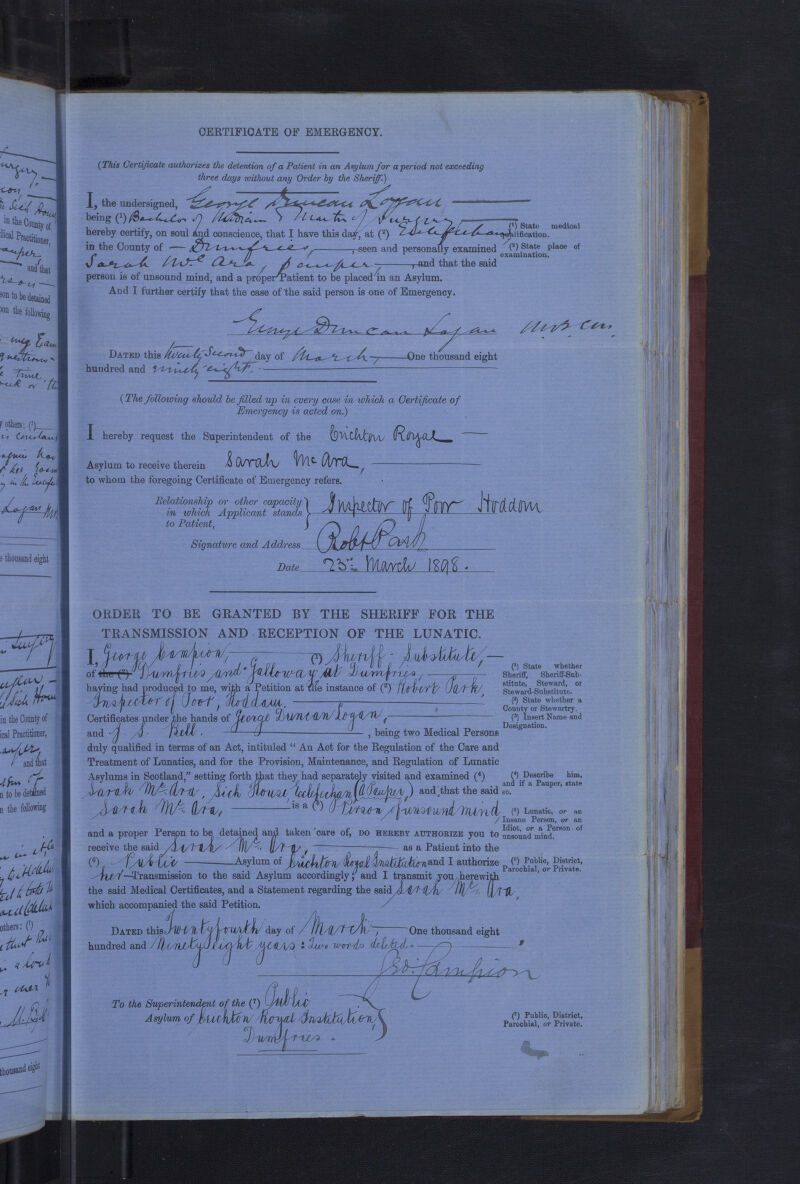 CERTIFICATE OF EMERGENCY.
(This Certificate authorizes the detention of a Patient in an Asylum for a period not exceeding
three days without any Order by the Sheriff.)
I, the undersigned, George Duncan Logan,
being (¹) Bachelor of Medicine & Master of Surgery
hereby certify, on soul and conscience, that I have this day, at (²) Ecclefechan
(¹) State medical
qualification.
in the County of Dumfries, seen and personally examined
(²) State place of
examination.
Sarah Mc Ara, pauper, and that the said
person is of unsound mind, and a proper Patient to be placed in an Asylum.
And I further certify that the case of the said person is one of Emergency.
George Duncan Logan M.B. C.M.
DATED this twenty second day of March One thousand eight
hundred and ninety eight.
(The following should be filled up in every case in which a Certificate of
Emergency is acted on.)
I hereby request the Superintendent of the Crichton Royal
Asylum to receive therein Sarah McAra,
to whom the foregoing Certificate of Emergency refers.
Relationship or other capacity
in which Applicant stands
to Patient,
Inspector of Poor Hoddom
Signature and Address Robt Park
Date 23rd March 1898.
ORDER TO BE GRANTED BY THE SHERIFF FOR THE
TRANSMISSION AND RECEPTION OF THE LUNATIC.
I, George Campion, (¹) Sheriff-Substitute,
of the (²) Dumfries and Galloway at Dumfries,
(¹) State whether
Sheriff, Sheriff-Sub-
stitute, Steward, or
Steward-Substitute.
having had produced to me, with a Petition at the instance of (³) Robert Park,
(²) State whether a
County or Stewartry.
Inspector of Poor, Hoddam.
(³) Insert Name and
Designation.
Certificates under the hands of George Duncan Logan,
and J. S. Bell. , being two Medical Persons
duly qualified in terms of an Act, intituled "An Act for the Regulation of the Care and
Treatment of Lunatics, and for the Provision, Maintenance, and Regulation of Lunatic
Asylums in Scotland," setting forth that they had separately visited and examined (⁴)
(⁴) Describe him,
and if a Pauper, state
so.
Sarah McAra, Sick House, Ecclefechan (a Pauper,) and that the said
Sarah McAra, is a (⁵) Person of unsound mind
(⁵) Lunatic, or an
Insane Person, or an
Idiot, or a Person of
unsound mind.
and a proper Person to be detained and taken care of, DO HEREBY AUTHORIZE you to
receive the said Sarah McAra, as a Patient into the
(⁶) Public Asylum of Crichton Royal Institution and I authorize
(⁶) Public, District,
Parochial, or Private.
her Transmission to the said Asylum accordingly; and I transmit you herewith
the said Medical Certificates, and a Statement regarding the said Sarah McAra,
which accompanied the said Petition.
DATED this Twentyfourth day of March, One thousand eight
hundred and Ninety eight years: Two words deleted.
Geo: Campion
To the Superintendent of the (⁷) Public
Asylum of Crichton Royal Institution,
Dumfries.
(⁷) Public, District,
Parochial, or Private.